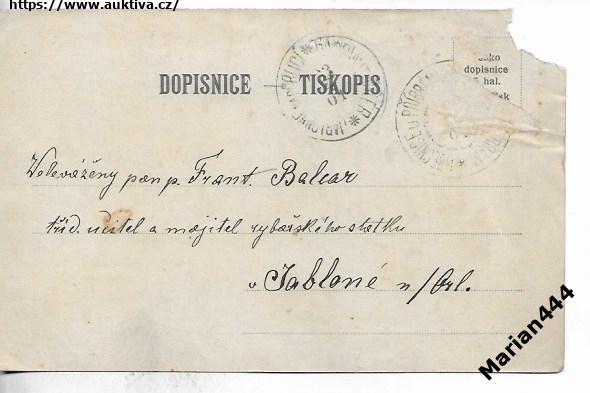 https://www.auktiva.cz/
DOPISNICE — TISKOPIS
dopisnice
hal.
Velevážený pan p. Frant. Balcar
tříd. učitel a majitel rybářského statku
v Jabloné n/Orl.
Marian444